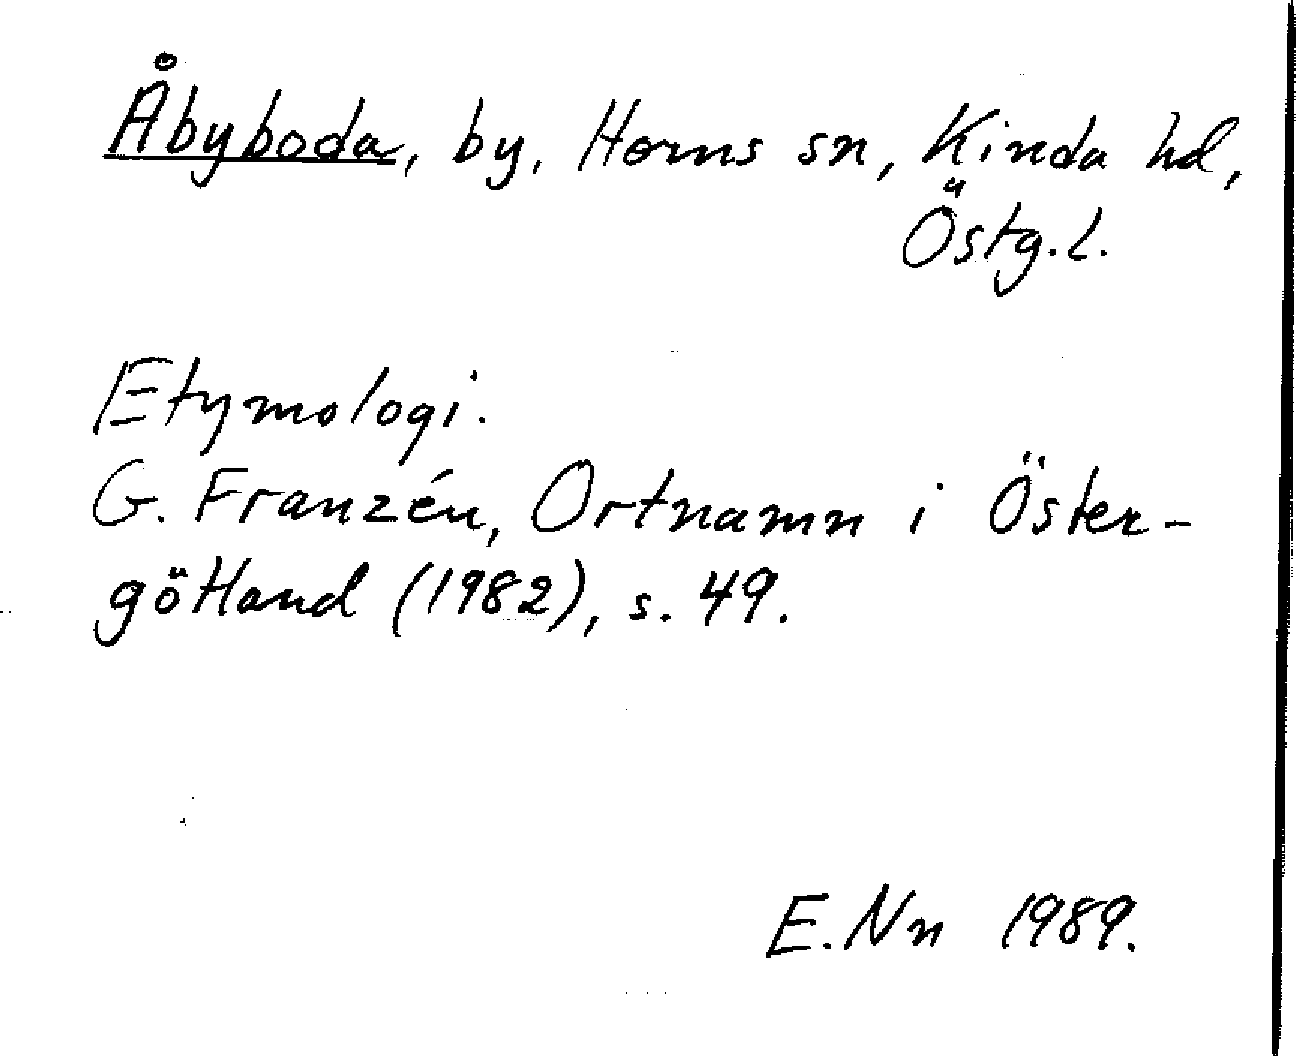 Åbyboda, by, Horns sn, Kinda hd,
Östg.l.
Etymologi.
G. Franzén, Ortnamn i Öster-
götland (1982), s. 49.
E.Nn 1989.